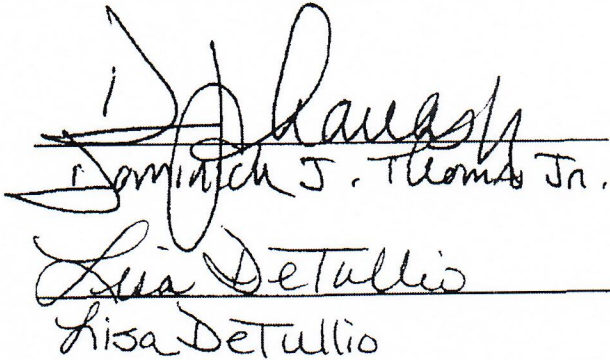 Dominick J. Thomas Jr.
Lisa DeTullio
Lisa DeTullio